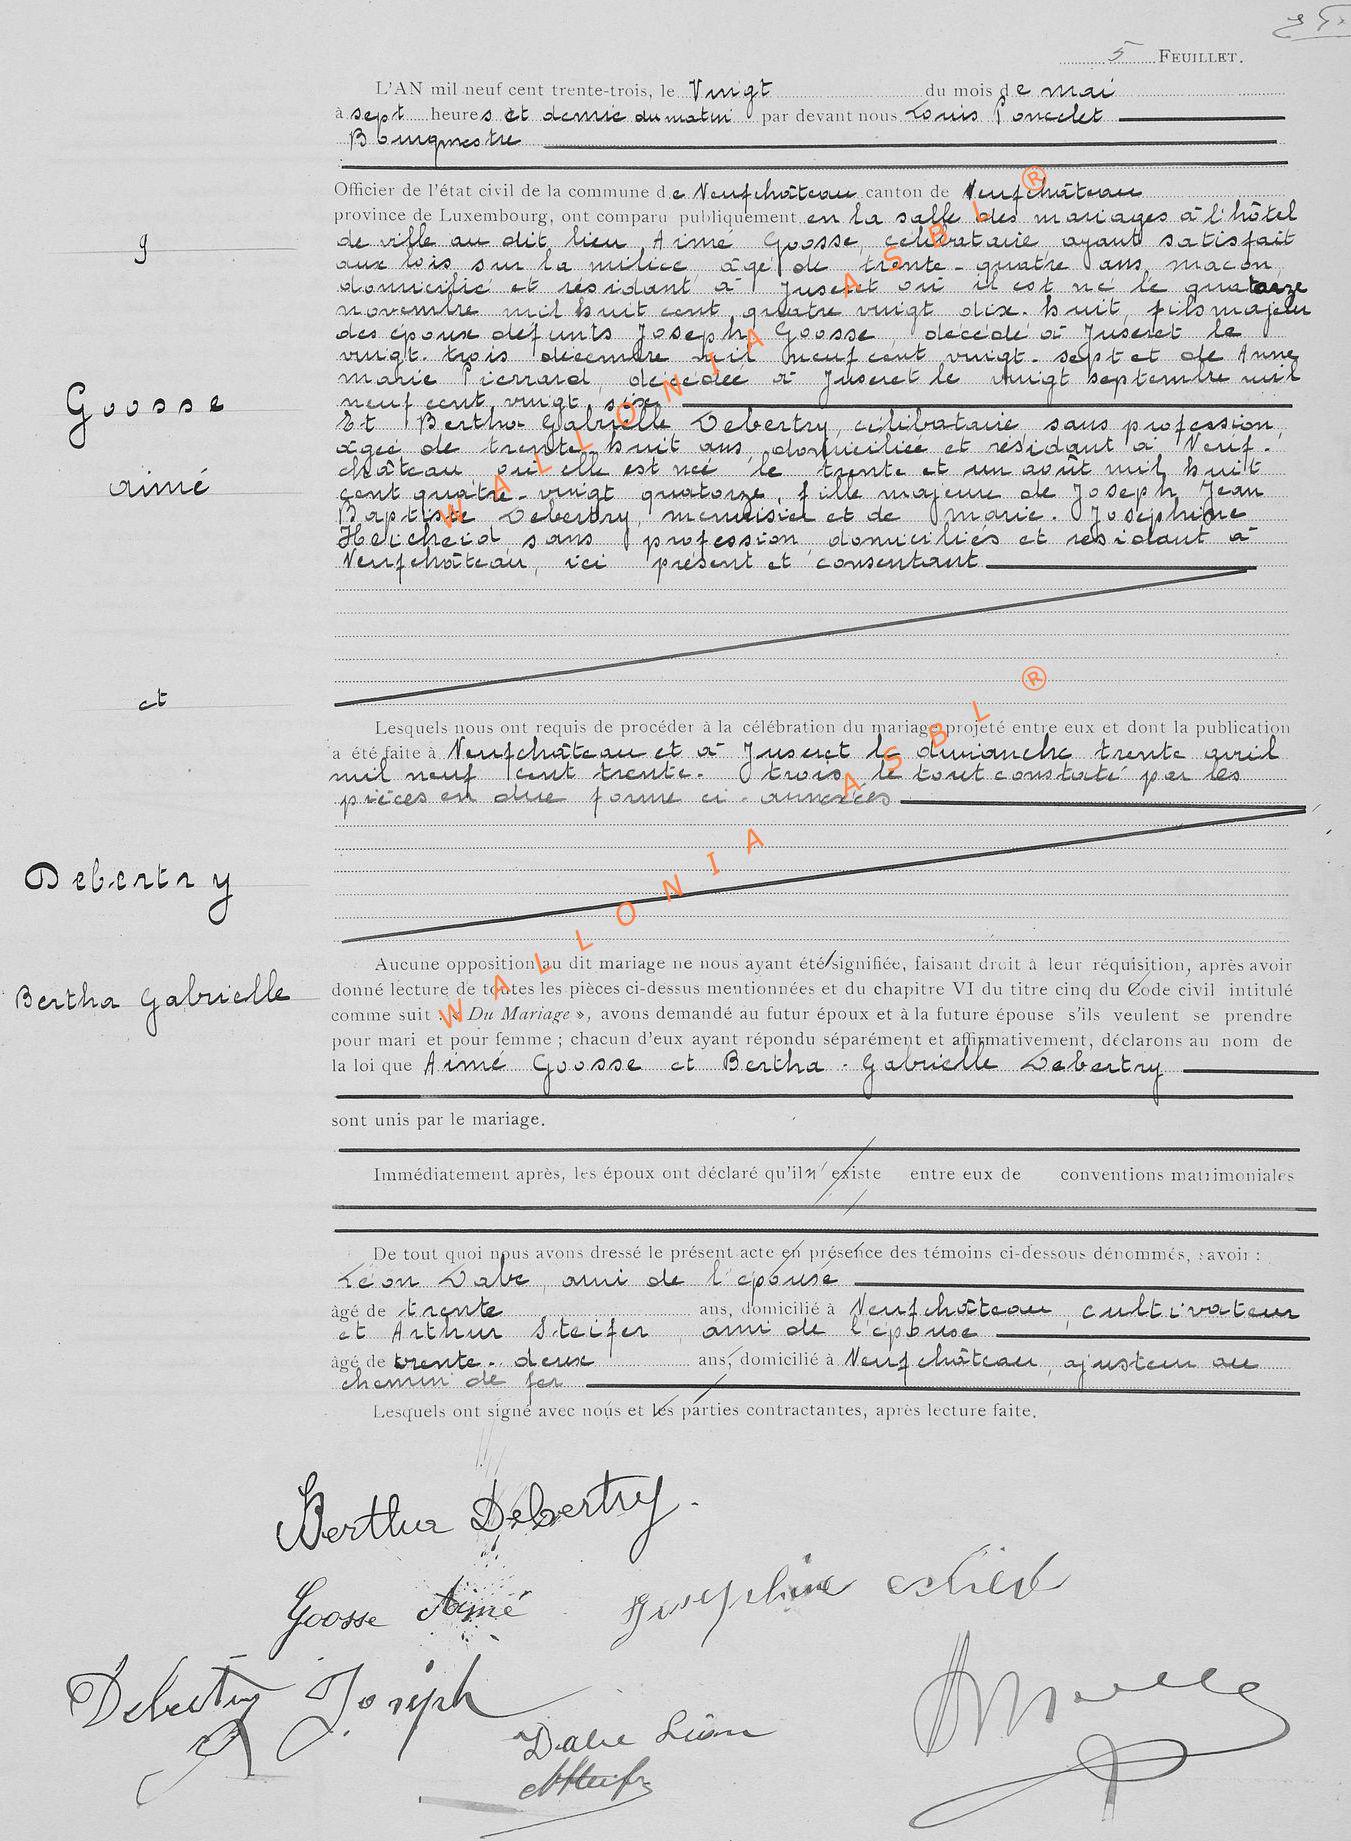 5 FEUILLET.
L'AN mil neuf cent trente-trois, le Vingt du mois de mai
à sept heures et demie du matin par devant nous Louis Poncelet
Bourgmestre
Officier de l'état civil de la commune de Neufchâteau canton de Neufchâteau
province de Luxembourg, ont comparu publiquement en la salle des mariages à l'hôtel
9
de ville au dit lieu Aimé Goosse, célibataire ayant satisfait
aux lois sur la milice, âgé de trente-quatre ans, maçon,
domicilié et résidant à Juseret où il est né le quatorze
novembre mil huit cent quatre vingt dix-huit, fils majeur
des époux défunts Joseph Goosse, décédé à Juseret le
vingt-trois décembre mil neuf cent vingt-sept et de Anne
marie Pierrard, décédée à Juseret le vingt septembre mil
neuf cent vingt-six
Goosse
aimé
Et Bertha-Gabrielle Debertry, célibataire sans profession,
âgée de trente-huit ans, domiciliée et résidant à Neuf-
château où elle est née le trente et un août mil huit
cent quatre-vingt quatorze, fille majeure de Joseph Jean
Baptiste Debertry, menuisier et de Marie-Josephine
Heicheid sans profession, domiciliés et résidant à
Neufchâteau, ici présent et consentant
et
Lesquels nous ont requis de procéder à la célébration du mariage projeté entre eux et dont la publication
a été faite à Neufchâteau et à Juseret le dimanche trente avril
mil neuf cent trente-trois, le tout constaté par les
pièces en due forme ci-annexées
Debertry
Bertha Gabrielle
Aucune opposition au dit mariage ne nous ayant été signifiée, faisant droit à leur réquisition, après avoir
donné lecture de toutes les pièces ci-dessus mentionnées et du chapitre VI du titre cinq du Code civil intitulé
comme suit : « Du Mariage », avons demandé au futur époux et à la future épouse s'ils veulent se prendre
pour mari et pour femme ; chacun d'eux ayant répondu séparément et affirmativement, déclarons au nom de
la loi que Aimé Goosse et Bertha-Gabrielle Debertry
sont unis par le mariage.
Immédiatement après, les époux ont déclaré qu'il n'existe entre eux de conventions matrimoniales
De tout quoi nous avons dressé le présent acte en présence des témoins ci-dessous dénommés, savoir :
Léon Dabe, ami de l'épouse
âgé de trente ans, domicilié à Neufchâteau, cultivateur
et Arthur Steifer, ami de l'épouse
âgé de trente-deux ans, domicilié à Neufchâteau, ajusteur au
chemin de fer
Lesquels ont signé avec nous et les parties contractantes, après lecture faite.
Bertha Debertry.
Goosse Aimé
Debertry Joseph
Dabe Léon
WALLONIA ASBL ®
WALLONIA ASBL ®